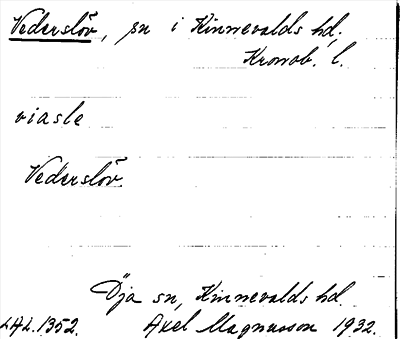 Vederslöv, sn i Kinnevalds hd,
Kronob. l.
viasle
Vederslöv.
Öja sn, Kinnevalds hd.
LAL.1352. Axel Magnusson 1932.